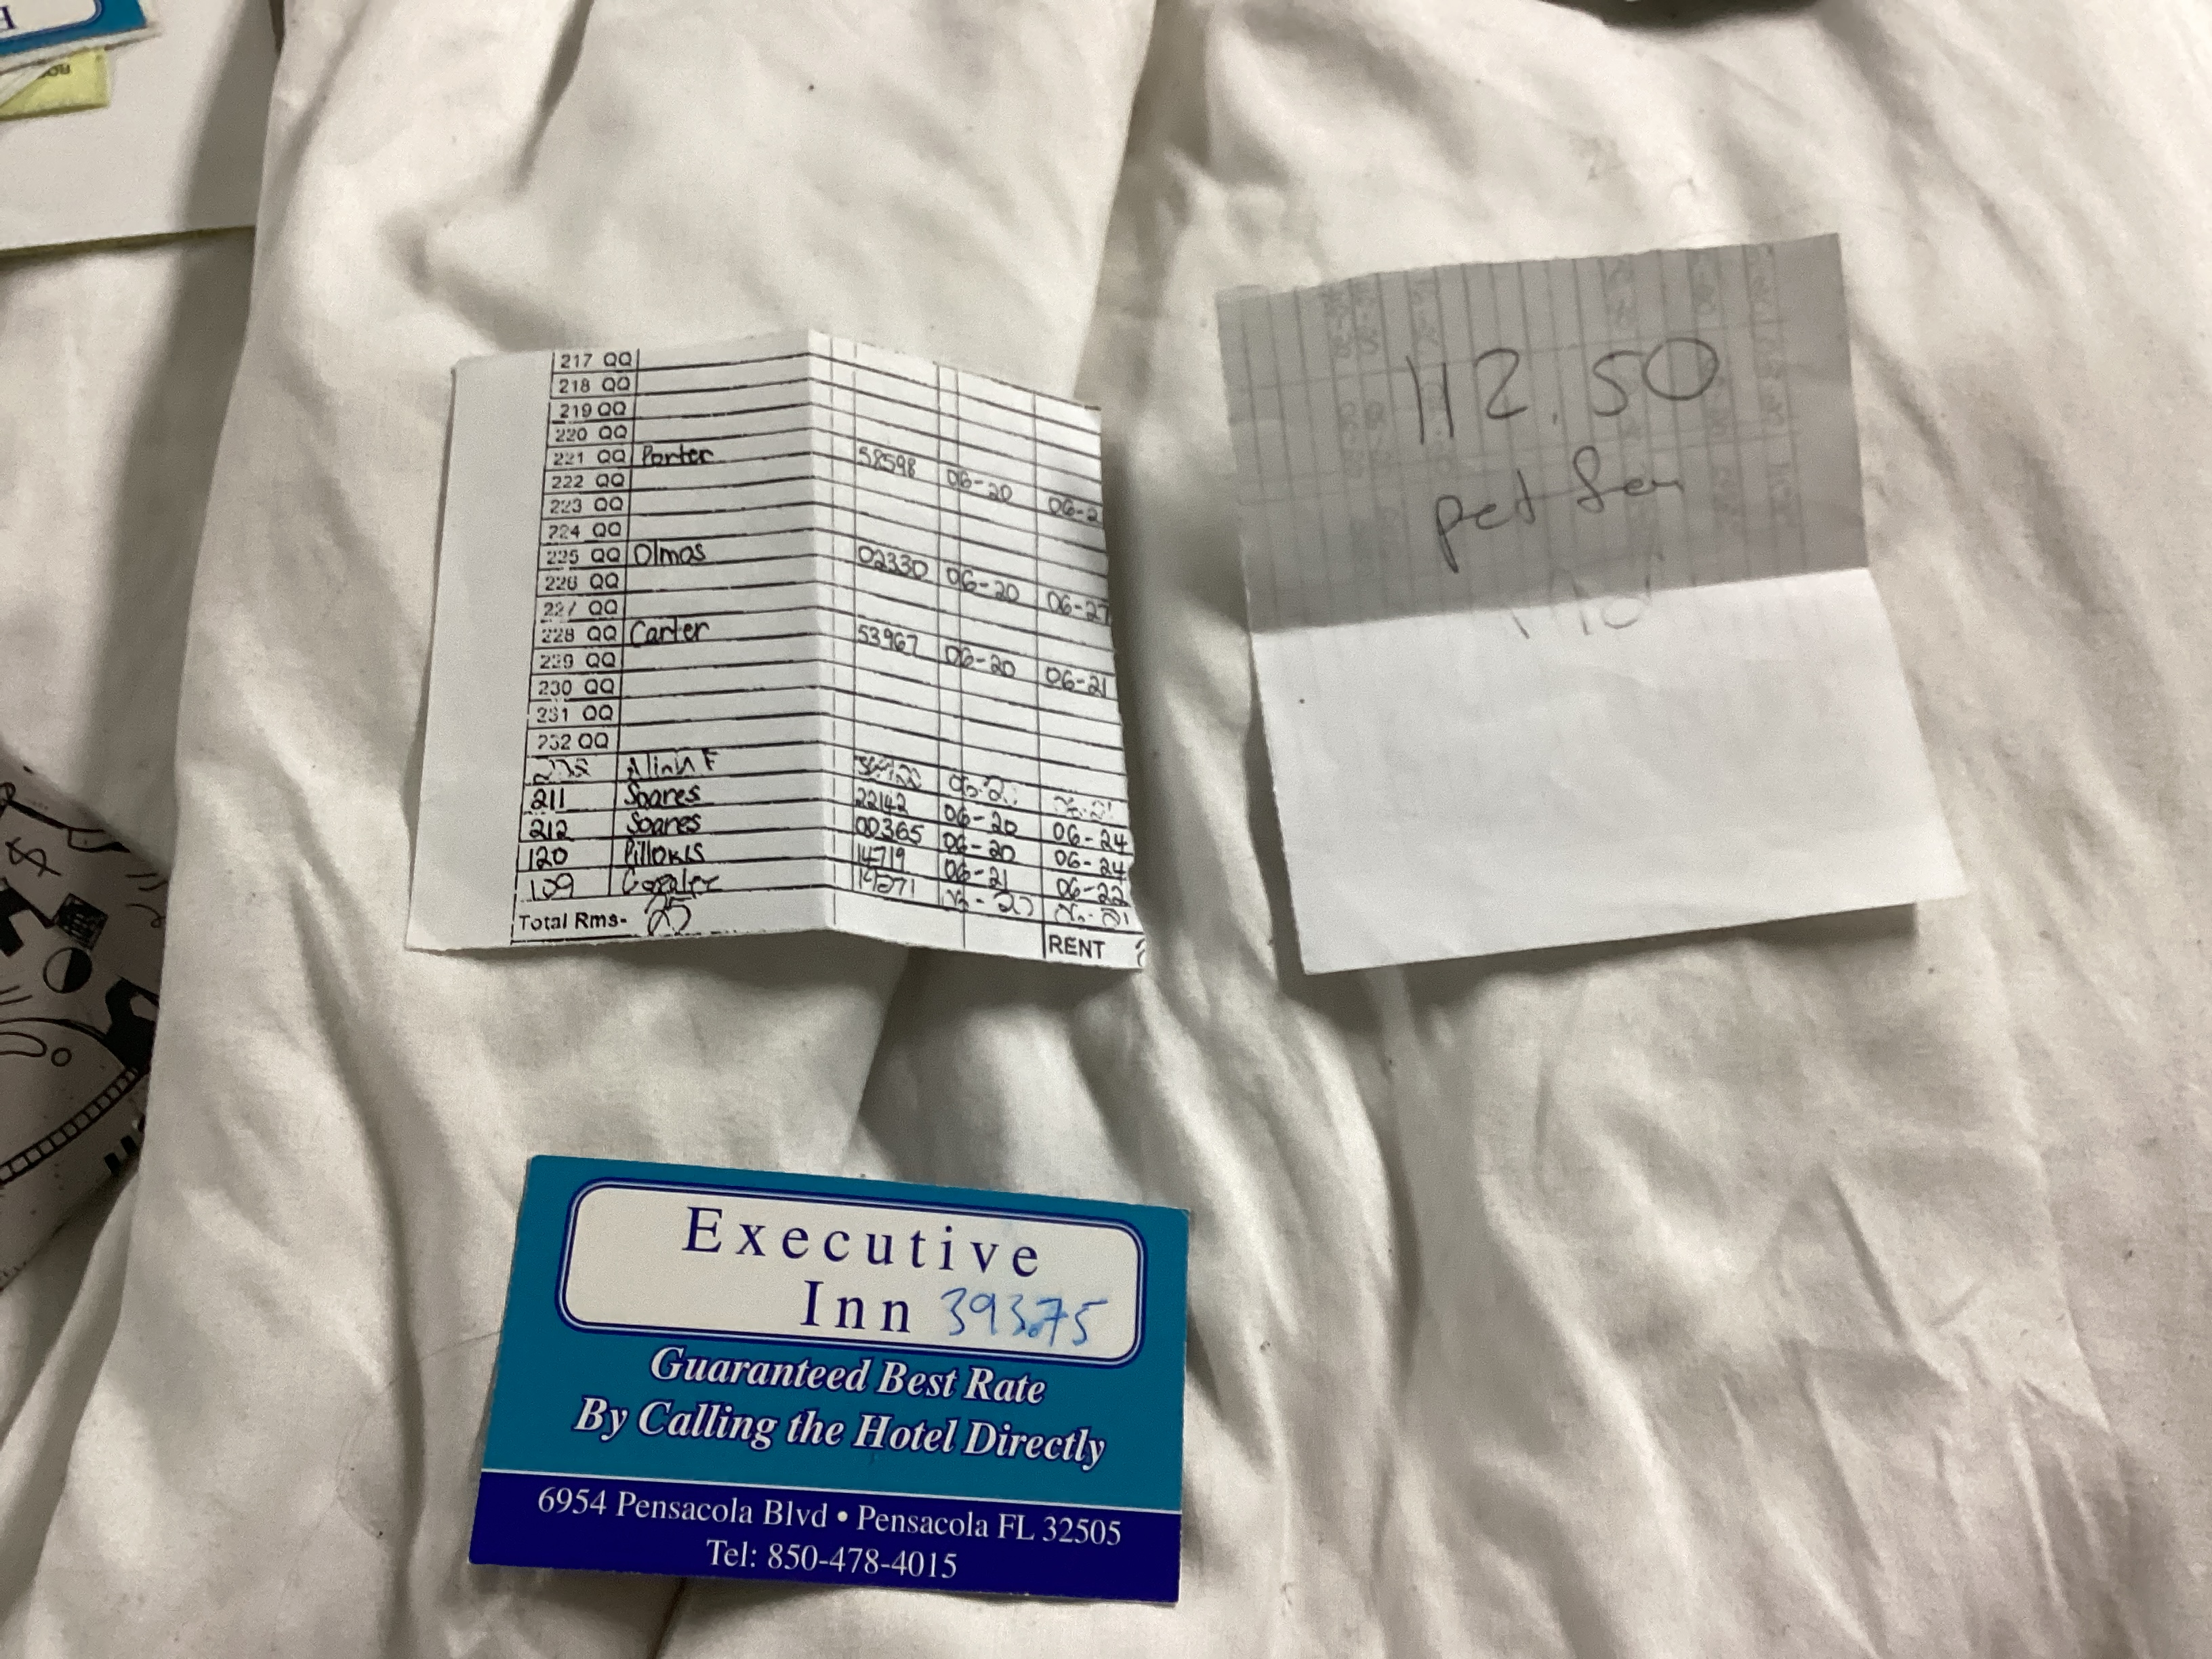 217 QQ
218 QQ
219 QQ
220 QQ
221 QQ Porter 58598 06-20 06-2
222 QQ
223 QQ
224 QQ
225 QQ Olmos 02330 06-20 06-27
226 QQ
227 QQ
228 QQ Carter 53967 06-20 06-21
229 QQ
230 QQ
231 QQ
232 QQ
211 Soares 22142 06-20 06-24
212 Soares 00365 06-20 06-24
120 14719 06-21 06-22
109
Total Rms- 25
RENT
112.50
pet fee
Executive
Inn 393.75
Guaranteed Best Rate
By Calling the Hotel Directly
6954 Pensacola Blvd • Pensacola FL 32505
Tel: 850-478-4015